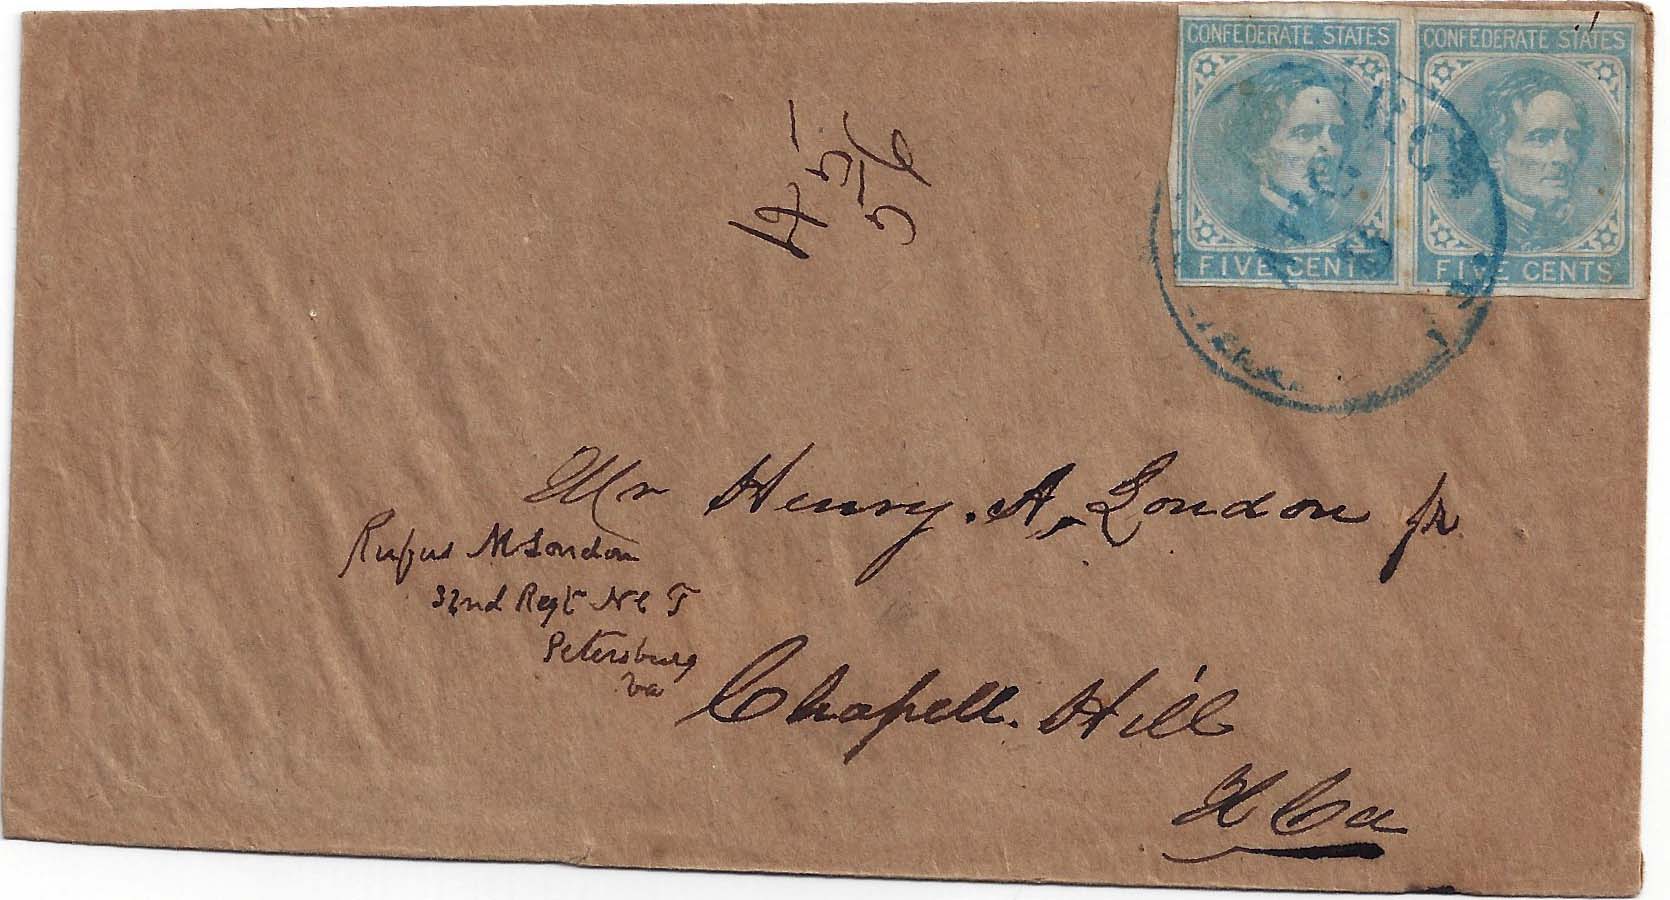 CONFEDERATE STATES
FIVE CENTS
CONFEDERATE STATES
FIVE CENTS
Mr Henry. A, London Jr.
Rufus M London
32nd Regt N C T
Petersburg
Va
Chapell. Hill
N Ca